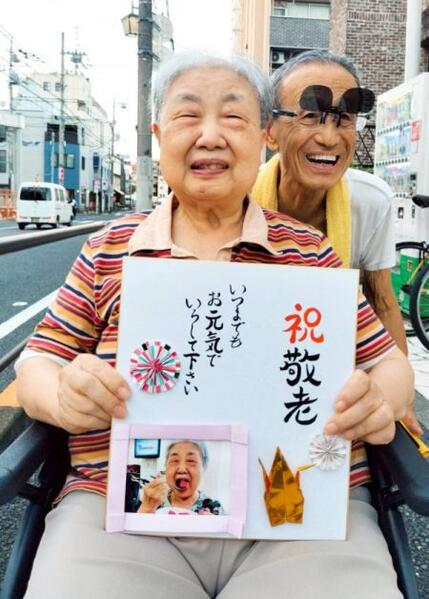 祝敬老
いつまでも
お元気で
いらして下さい